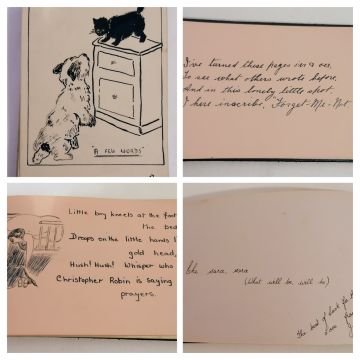 "A FEW WORDS"
I've turned these pages o'er & o'er,
To see what others wrote before,
And in this lonely little spot,
I here inscribe, Forget-Me-Not.
Little boy kneels at the foot
the bed
Droops on the little hands l
gold head,
Hush! Hush! Whisper who
Christopher Robin is saying
prayers.
Che sara, sara
(What will be will be)
The best of luck for the